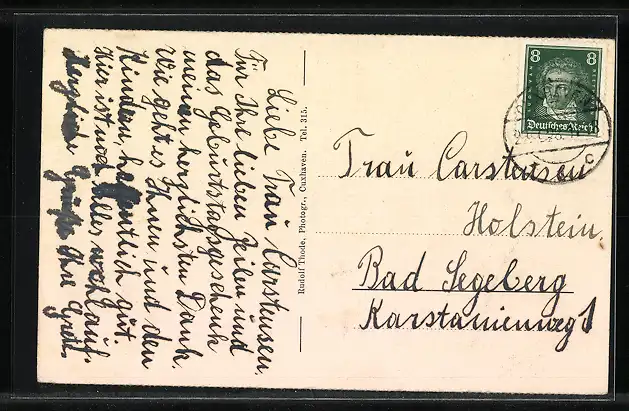 Liebe Frau Carstensen.
Für Ihre lieben Zeilen und
das Geburtstagsgeschenk
meinen herzlichsten Dank.
Wie geht es Ihnen und den
Kindern, hoffentlich gut.
Hier ist noch alles wohlauf.
Herzliche Grüße Ihre
Rudolf Thode, Photogr., Cuxhaven. Tel. 315.
8 8
Deutsches Reich
c
Frau Carstensen
Holstein
Bad Segeberg
Karstanienweg 1